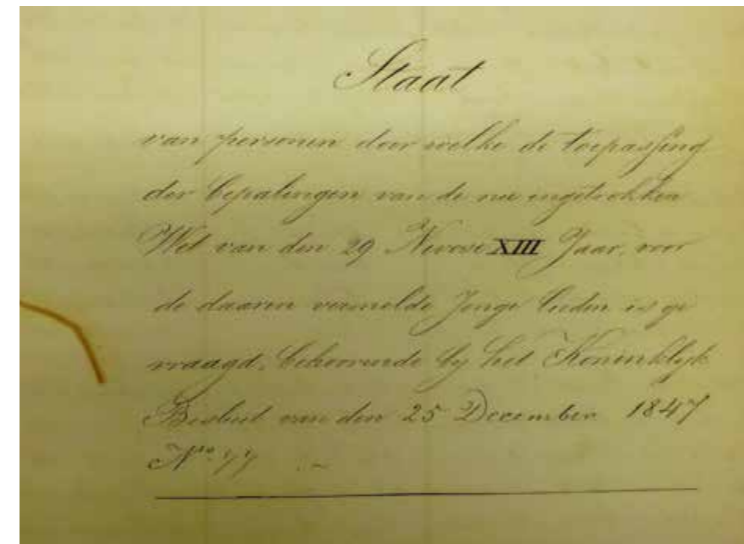 Staat
van personen door welke de toepassing
der bepalingen van de nu ingetrokken
Wet van den 29 Nivose XIII Jaar, voor
de daarin vermelde Jonge lieden is ge
vraagd, behoorende by het Koninklyk
Besluit van den 25 December 1847
N.ro 77